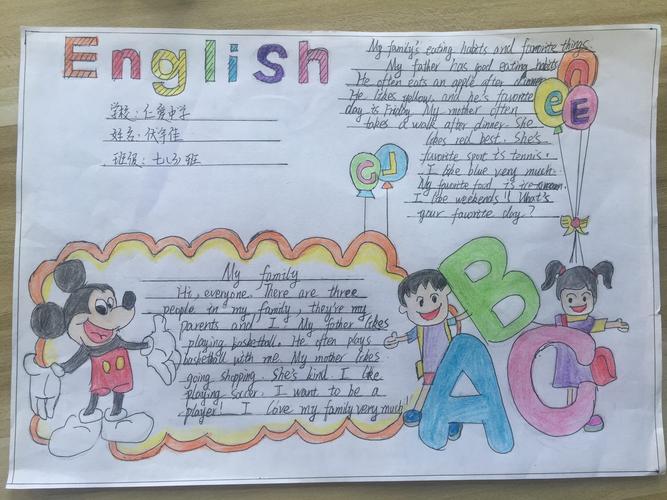 English
学校：仁爱中学
姓名：伏守佳
班级：七(3)班
My family's eating habits and favorite things
My father has good eating habits
He often eats an apple after dinner
He likes yellow, and he's favorite
day is Friday. My mother often
takes a walk after dinner. She
likes red best. She's
favorite sport is tennis.
I like blue very much.
My favorite food is ice-cream.
I like weekends! What's
your favorite day?
n
e E
G L
My family
Hi, everyone. There are three
people in my family, they're my
parents and I. My father likes
playing basketball. He often plays
basketball with me. My mother likes
going shopping. She's kind. I like
playing soccer. I want to be a
player! I love my family very much!
B
A C